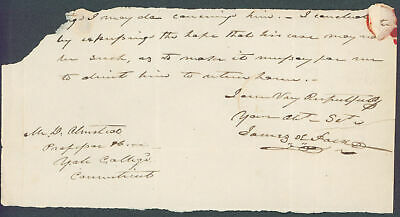 I may due concerning him. - I conclude
by expressing the hope that his case may not
be such, as to make it necessary for me
to direct him to return home. -
I am Very Respectfully
Your Obt - Svt -
James K Polk
Mr. D. Olmsted
Professor &c
Yale College
Connecticut